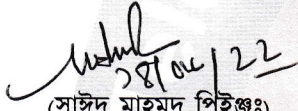 28/04/22
(সাঈদ মাহমুদ পিইঞ্জঃ)